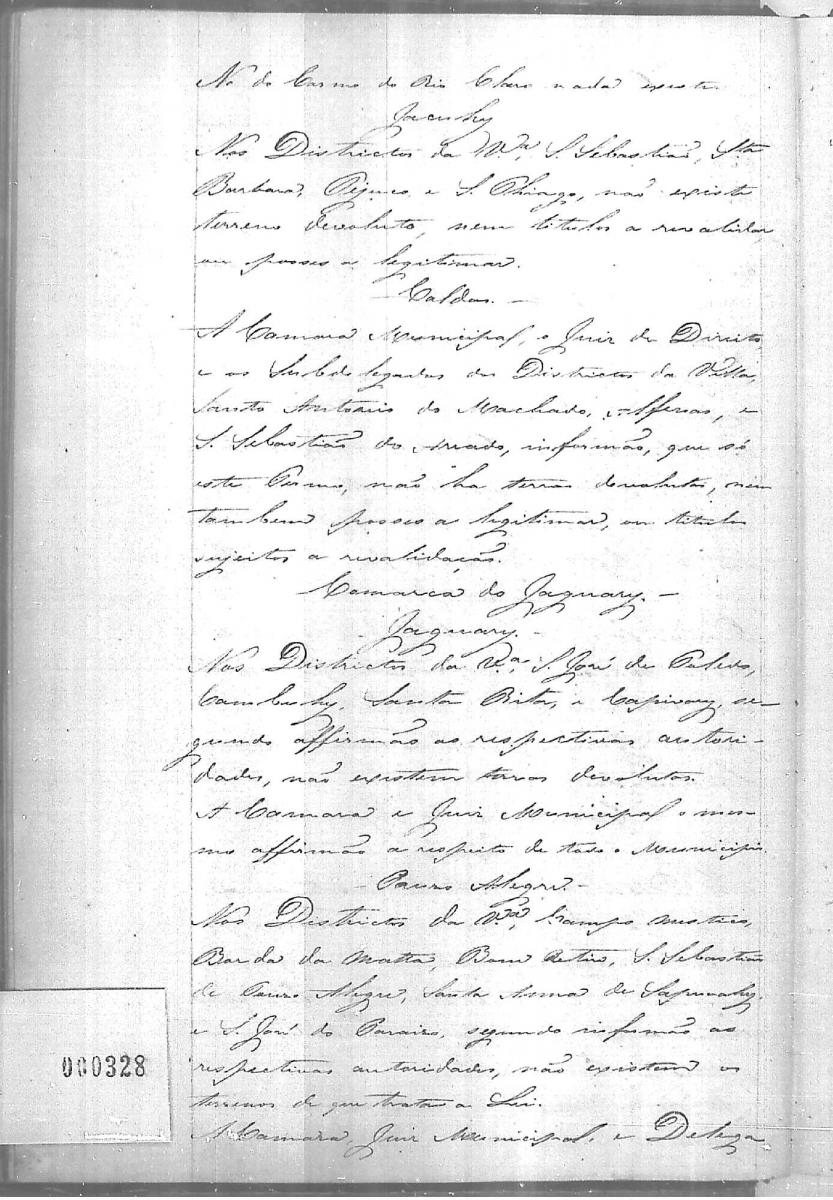 No do Carmo do Rio Claro nada existe.
Jacuhy
Nos Districtos da V.ª, S. Sebastião, Sta
Barbara, e S. Thiago, não existe
terreno devoluto, nem titulos a revalidar
ou posses a legitimar.
- Caldas. -
A Camara Municipal, o Juiz de Direito,
e os Subdelegados dos Districtos da Villa,
Santo Antonio do Machado, Alfenas, e
S. Sebastião do Areado, informão, que
este Termo, não ha terras devolutas, nem
tambem posses a legitimar, ou titulos
sujeitos a revalidação.
Comarca do Jaguary. -
- Jaguary. -
Nos Districtos da V.ª, S. José de Toledo,
Cambuhy, Santa Rita, e Capivary, se-
gundo affirmão as respectivas autori-
dades, não existem terras devolutas.
A Camara e Juiz Municipal o mes-
mo affirmão a respeito de todo o Municipio.
- Pouso Alegre. -
Nos Districtos da V.ª, Campo mistico,
Borda da Matta, Bom Retiro, S. Sebastião
de Pouso Alegre, Santa Anna de Sapucahy,
e S. José do Paraizo, segundo informão as
respectivas autoridades, não existem os
terrenos de que trata a Lei.
A Camara, Juiz Municipal, e Delega
000328